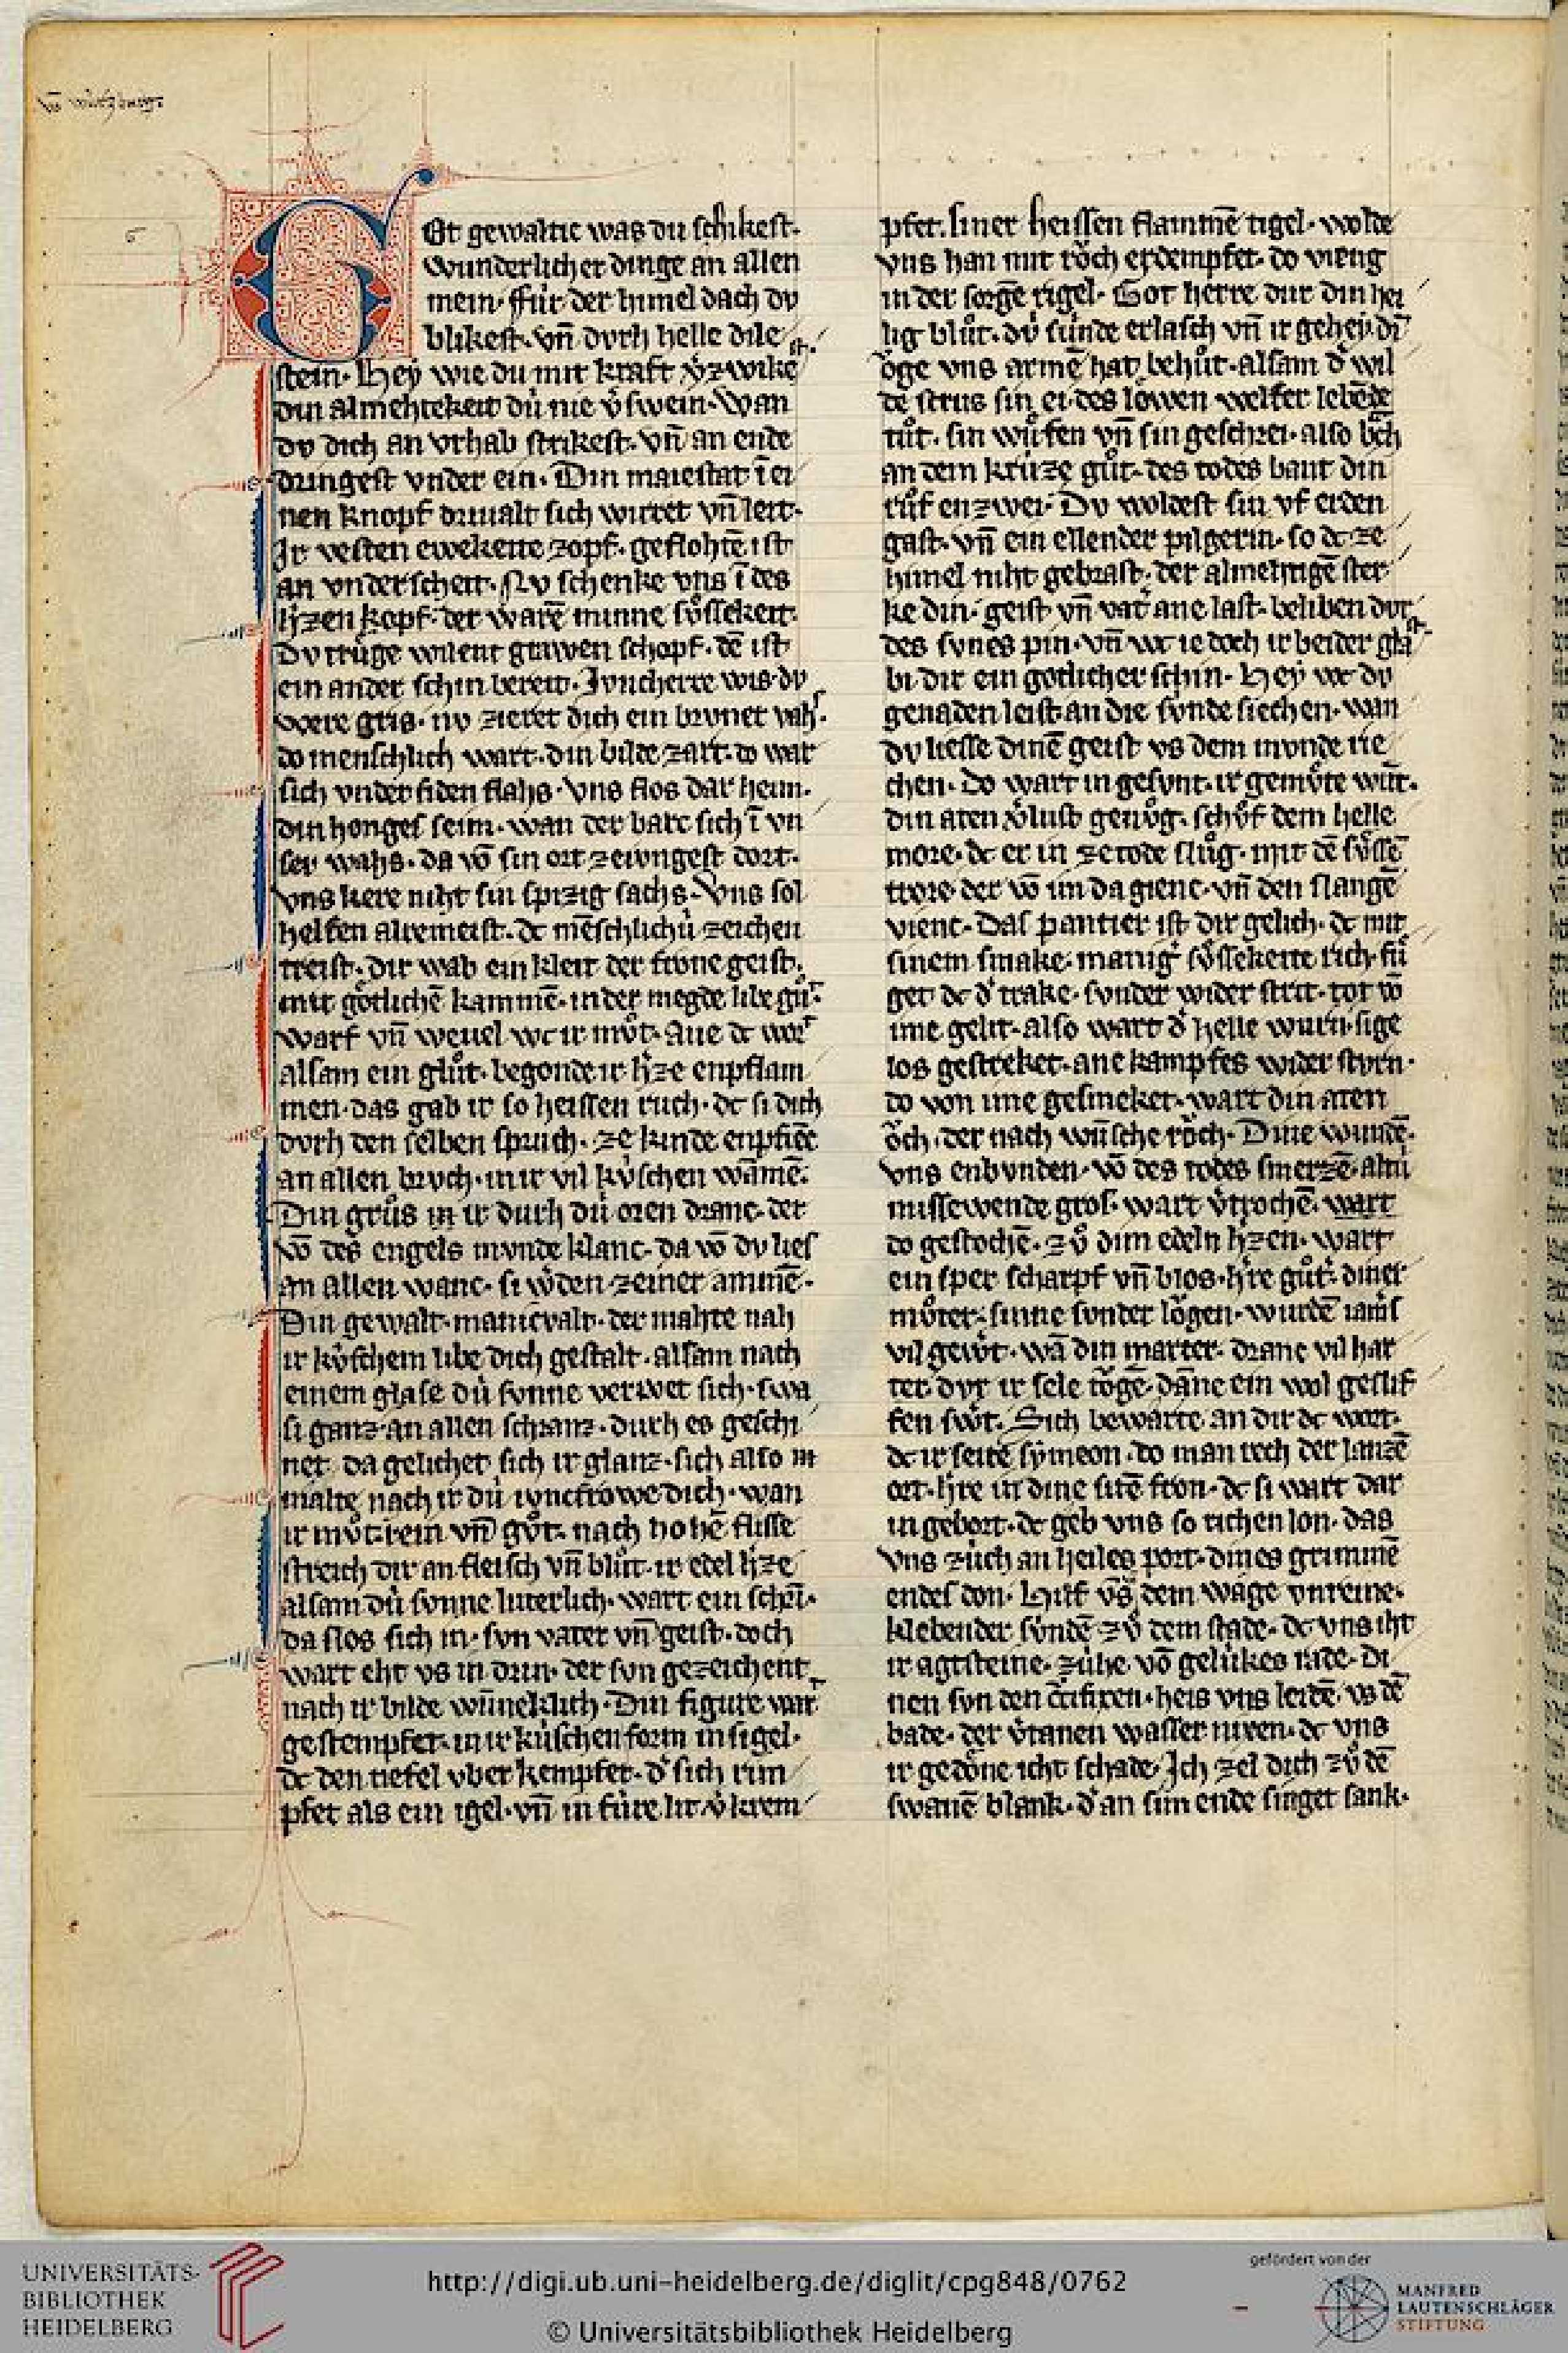 vō wirtzburg
G Ot gewaltic was du schikest·
wunderlicher dinge an allen
mein· Für der himel dach dv
blikest· vn̄ dvrh helle dile
stein· Hey wie du mit kraft
din almehtekeit dù nie v̾swein· wan
dv dich an vrhab strikest· vn̄ an ende
dringest vnder ein· Din maiestat ī ei
nen knopf drivalt sich wirret vn̄ leit·
Ir vesten ewekeite zopf· geflohtē ist
an vnderscheit· Nv schenke vns ī des
h̾zen kopf· der warē minne sv̊ssekeit·
Dv trůge wilent grawen schopf· dē ist
ein ander schin bereit· Ivncherre wis· dv
were gris· nv zieret dich ein brvnet vahs·
do menschlich wart· din bilde zart· do war
sich vnder siden flahs· vns flos dar hein·
din honges sein· wan der barc sich ī vn
ser wahs· da vō sin ort zewngest dort·
vns kere niht sin spizig sachs· Vns sol
helfen alremeist· dc mēschlichù zeichen
treist· dir wab ein kleit der frone geist·
mit gȯtlichē kammē· in der megde libe gůt·
warf vn̄ wevel wc ir mv̊t· Aue dc wort
alsam ein glůt· begonde ir h̾ze enpflam
men· das gab ir so heissen ruch· dc si dich
dvrh den selben spruch· ze kinde enpfiēc
an allen brvch· in ir vil kv̇schen wāmē·
Din grůs in ir durh dù oren dranc· der
vō des engels mvnde klanc· da vō dv lies
an allen wanc· si w̾den zeiner ammē·
Din gewalt· manicvalt· der mahte nah
ir kv̇schem libe dich gestalt· alsam nach
einem glase dù svnne verwet sich· swa
si ganz· an allen schranz· durh es geschi
net· da gelichet sich ir glanz· sich also in
malte nach ir dù ivncfrowe dich· wan
ir mv̊t· rein vn̄ gv̊t· nach hohē flisse
streich dir an fleisch vn̄ blůt· ir edel h̾ze
alsam dù svnne luterlich· wart ein schrī·
da slos sich in· svn vater vn̄ geist· doch
wart eht vs in drin· der svn gezeichent
nach ir bilde wūneklich· Din figure wart
gestempfet· in ir kùschen form insigel·
dc den tiefel vber kempfet· d̾ sich rim
pfet als ein igel· vn̄ in fùre lit· v̾krem
pfet· siner heissen flammē tigel· wolde
vns han mit rȯch erdempfet· do vieng
in der sorgē rigel· Got herre dur din hei
lig blůt· dù sùnde erlasch vn̄ ir gehey· dī
ȯge vns armē hat behůt· alsam d̾ wil
de strus sin ei· des lȯwen welfer lebēde
tůt· sin wůfen vn̄ sin geschrei· also bch
an dem krùze gůt· des todes bant din
růf enzwei· Dv woldest sin vf erden
gast· vn̄ ein ellender pilgerin· so dc ze
himel niht gebrast· der almehtigē ster
ke din· geist vn̄ vat̾ ane last· beliben dvr
des svnes pin· vn̄ wc ie doch ir beider glast
bi dir ein gȯtlicher schin· Hey wc dv
genaden leist· an die svnde siechen· wan
dv liesse dinē geist vs dem mvnde rie
chen· Do wart in gesvnt· ir gemv̊te wūt·
din aten v̾lust genv̊g· schv̊f dem helle
more· dc er in ze tode slůg· mit dē sv̊ssē
trore· der vō im da gienc· vn̄ den slangē
vienc· Das pantier ist dir gelich· dc mit
sinem smake· manig̾ sv̊ssekeite rich· fu̇
get dc d̾ trake· svnder wider strit· tot vō
ime gelit· also wart d̾ helle wurn· sige
los gestreket· ane kampfes wider stvrn·
do von ime gesmeket· wart din aten
ȯch· der nach wūsche rȯch· Dine wundē·
vns enbvnden· vō des todes smerzē· altù
missewende gros· wart v̾trochē· wart
do gestochē· zv̊ dim edeln h̾zen· wart
ein sper scharpf vn̄ blos· h̾re gůt· diner
mv̊ter· sinne svnder lȯgen· wurdē iamers
vil gewt· wā din marter· dranc vil har
ter· dvr ir sele tȯgē· dāne ein wol geslif
fen swt· Sich bewarte an dir dc wort·
dc ir seite symeon· do man rech der lanzē
ort· h̾re in dine sitē fron· dc si wart dar
in gebort· dc geb vns so richen lon· das
vns zùch an heiles port· dines grimmē
endes don· Hilf vs dem wage vnreine·
klebender svndē zv̊ dem stade· dc vns iht
ir agtsteine· zùhe vō gelùkes rade· Di
nen svn den crucifixen· heis vns leidē· vs dē
bade· der v̾tanen wasser nixen· dc vns
ir gedȯne icht schade· Ich zel dich zv̊ dē
swanē blank· d̾ an sim ende singet sank·
UNIVERSITÄTS-
BIBLIOTHEK
HEIDELBERG
http://digi.ub.uni-heidelberg.de/diglit/cpg848/0762
© Universitätsbibliothek Heidelberg
gefördert von der
MANFRED
LAUTENSCHLÄGER
STIFTUNG